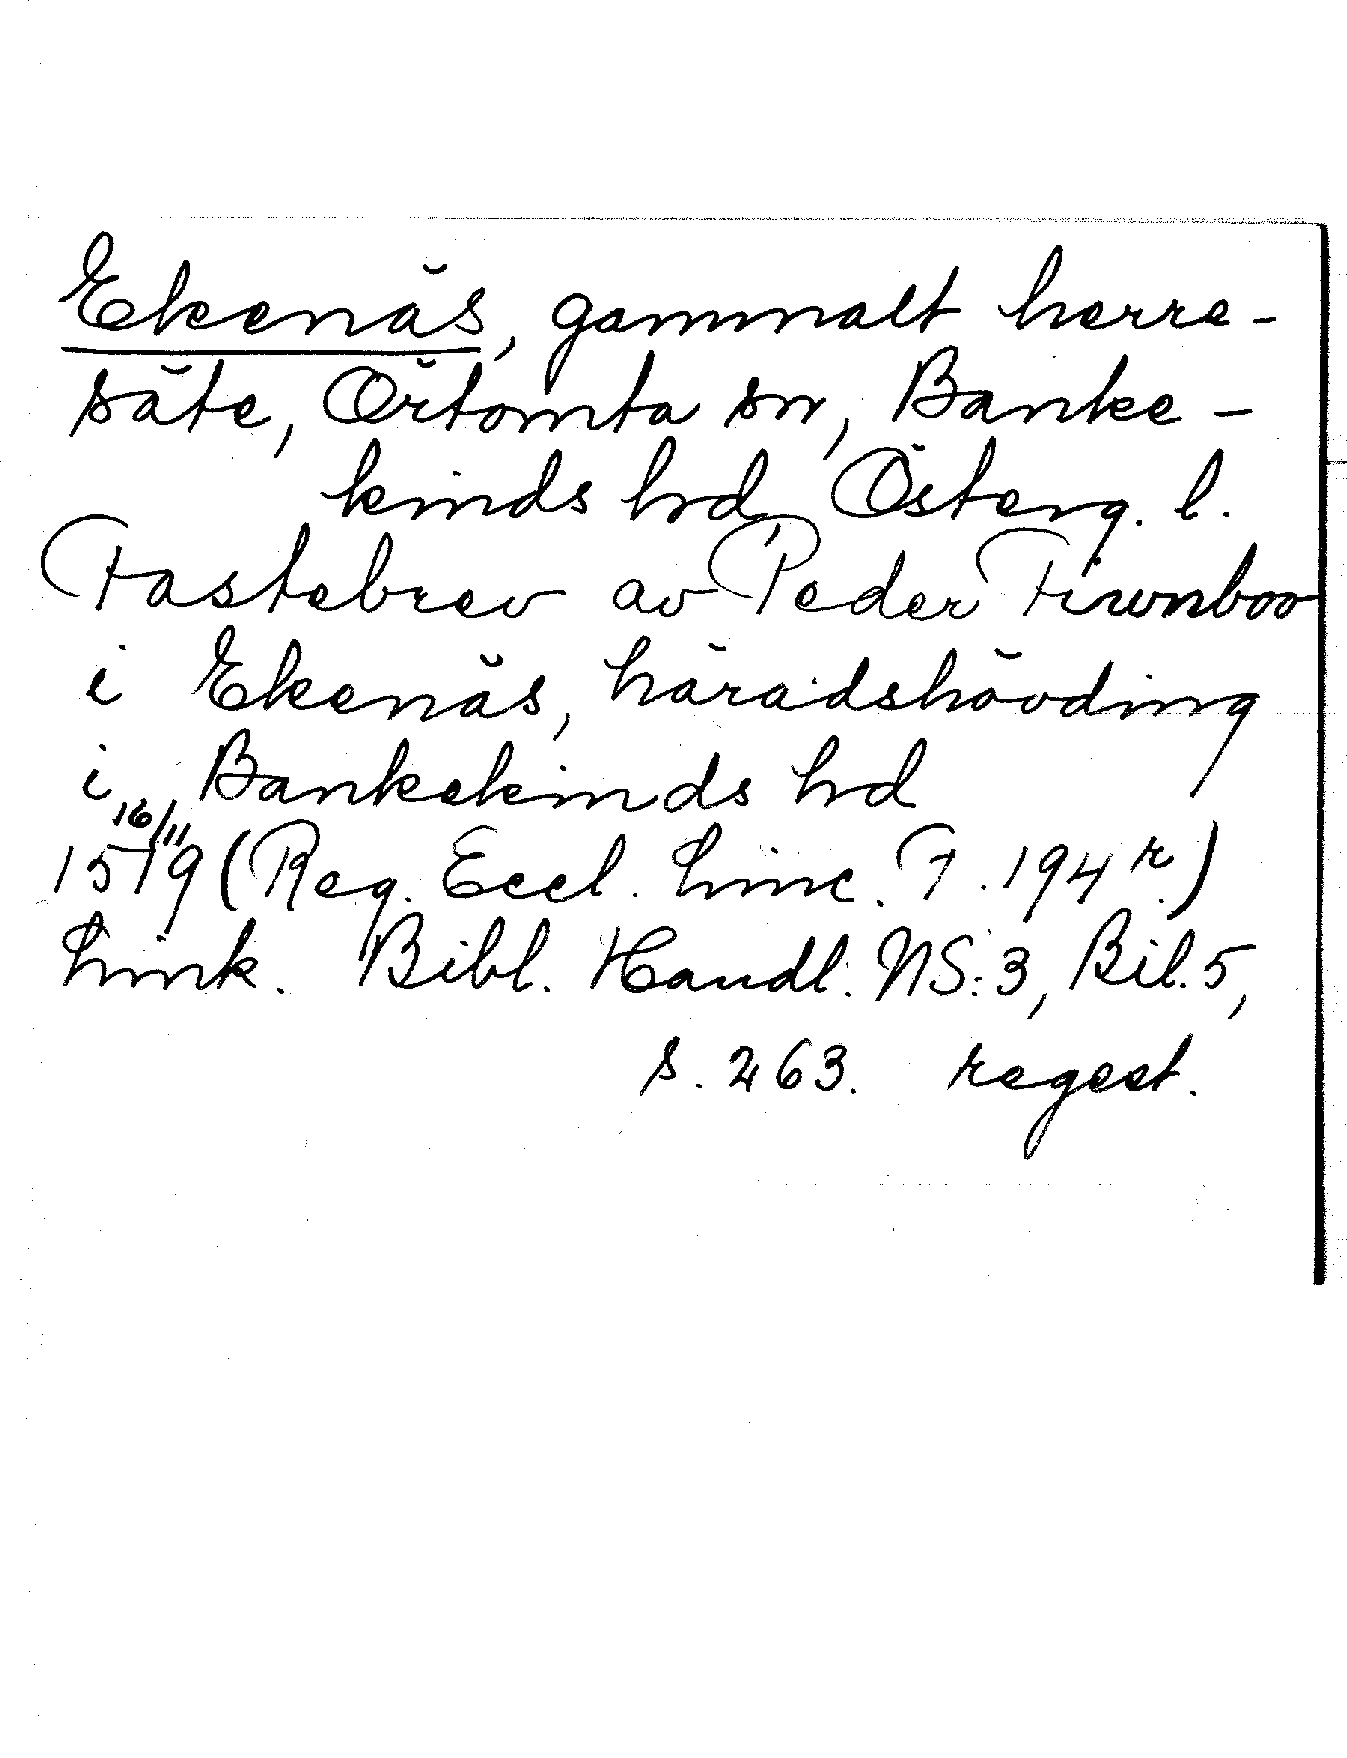 Ekenäs, gammalt herre-
säte, Örtomta sn, Banke-
kinds hrd, Österg. l.
Fastebrev av Peder Firunboo
i Ekenäs, häradshövding
i Bankekinds hrd
16/11
1519 (Reg. Eccl. Linc. F. 194 r.)
Link. Bibl. Handl. NS:3, Bil. 5,
s. 263. regest.